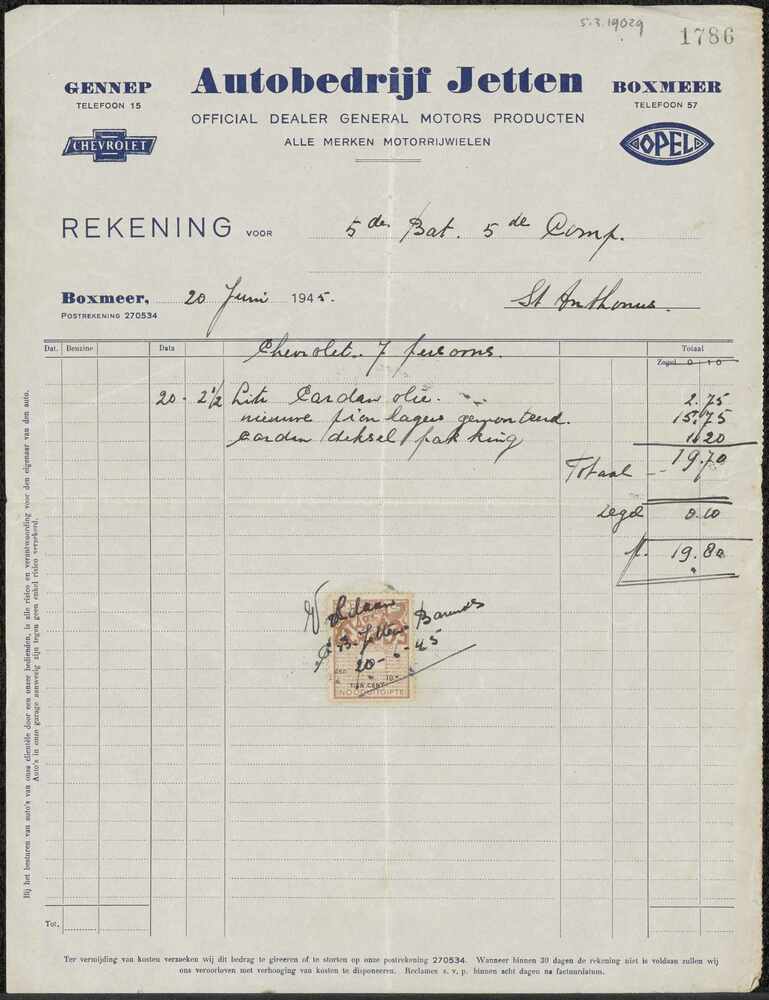 5.3.19029
1786
GENNEP
TELEFOON 15
Autobedrijf Jetten
BOXMEER
TELEFOON 57
OFFICIAL DEALER GENERAL MOTORS PRODUCTEN
ALLE MERKEN MOTORRIJWIELEN
CHEVROLET
OPEL
REKENING VOOR 5de Bat. 5de Comp.
Boxmeer, 20 Juni 1945.
St Anthonus.
POSTREKENING 270534
Dat. Benzine Data Totaal
Chevrolet 7 persoons.
Zegel 0 10
20 - 2 1/2 Litr Cardan olie. 2.75
nieuwe pion lagers gemonteerd. 15.75
Cardan deksel pakking 1.20
Totaal 19.70
zegel 0.10
f. 19.80
Voldaan
Jetten Barends
20-6-45
TIEN CENT
NOODUITGIFTE
Bij het besturen van auto's van ons clientèle door een onzer bedienden, is alle risico en verantwoording voor den eigenaar van den auto.
Auto's in onze garage aanwezig zijn tegen geen enkel risico verzekerd.
Tot.
Ter vermijding van kosten verzoeken wij dit bedrag te gireeren of te storten op onze postrekening 270534. Wanneer binnen 30 dagen de rekening niet is voldaan zullen wij
ons veroorloven met verhooging van kosten te disponeeren. Reclames s. v. p. binnen acht dagen na factuurdatum.